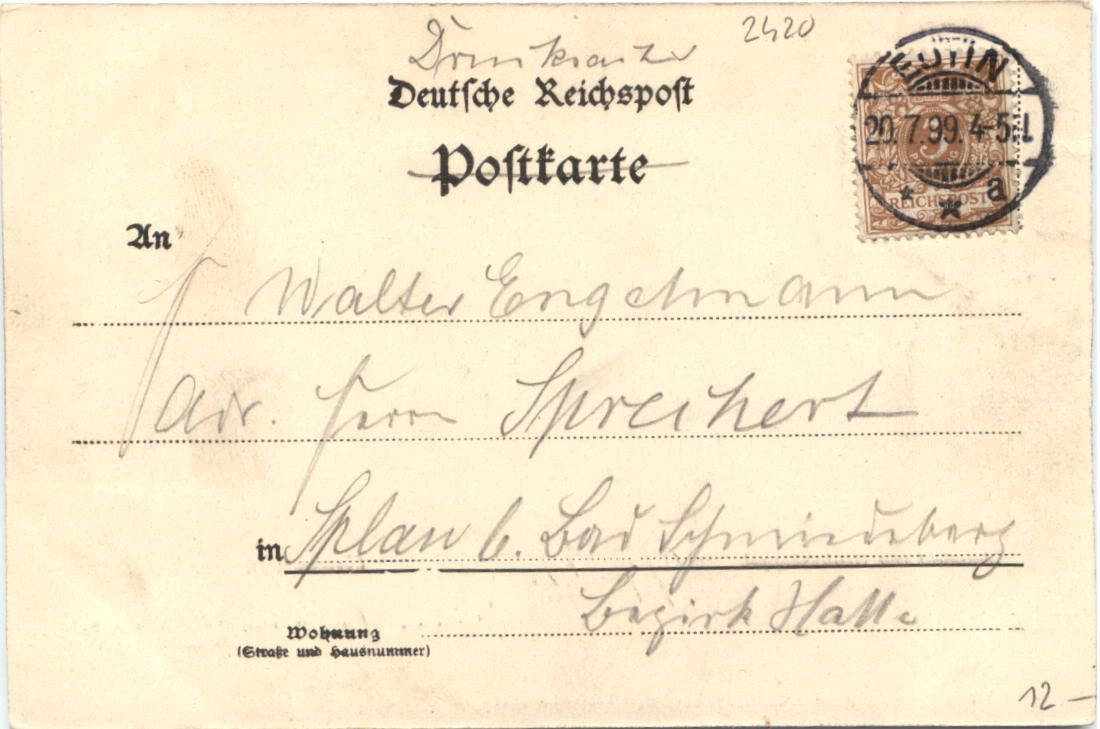 2420
Drucksache
Deutsche Reichspost
Postkarte
EUTIN
20.7.99. 4-5N.
* * a
REICHSPOST
An
Walter Engelmann
Adr. Herrn Spreichert
in Splau b. Bad Schmiedeberg
Bezirk Halle
Wohnung
(Straße und Hausnummer)
12-